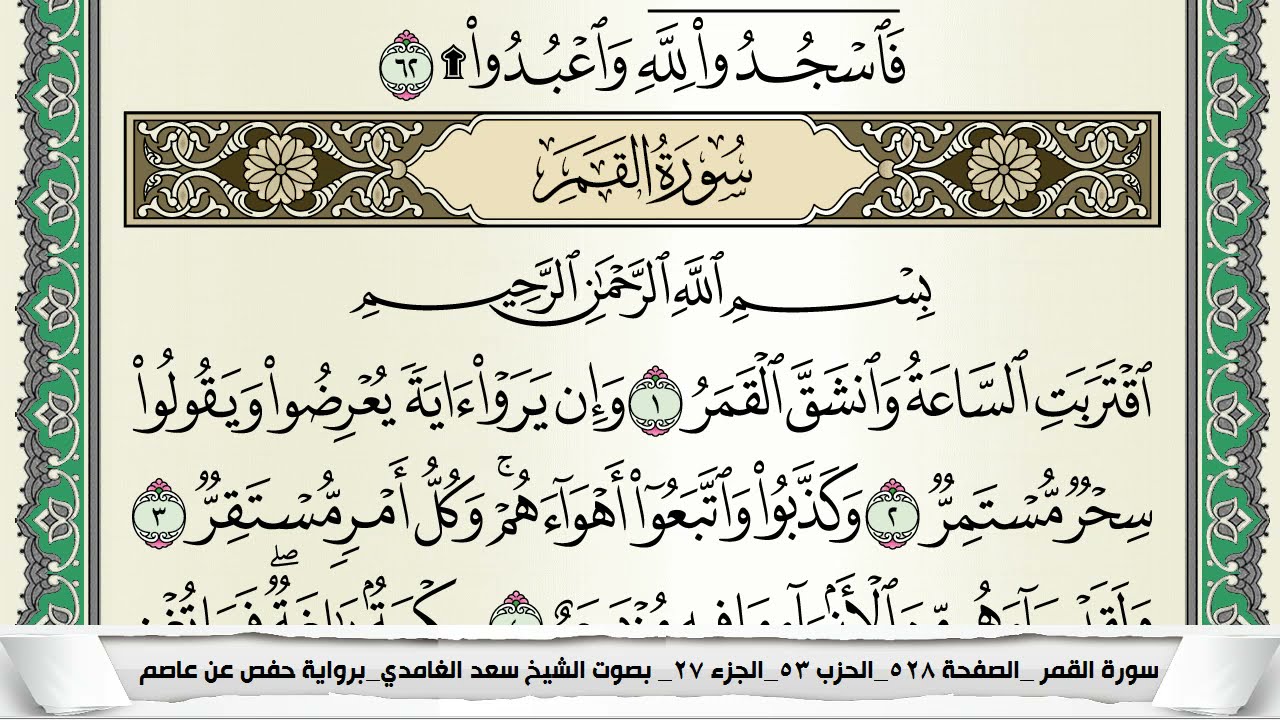 فَٱسْجُدُوا۟ لِلَّهِ وَٱعْبُدُوا۟ ۩ ٦٢
سُورَةُ القَمَرِ
بِسْمِ ٱللَّهِ ٱلرَّحْمَٰنِ ٱلرَّحِيمِ
ٱقْتَرَبَتِ ٱلسَّاعَةُ وَٱنشَقَّ ٱلْقَمَرُ ١ وَإِن يَرَوْا۟ ءَايَةً يُعْرِضُوا۟ وَيَقُولُوا۟
سِحْرٌ مُّسْتَمِرٌّ ٢ وَكَذَّبُوا۟ وَٱتَّبَعُوٓا۟ أَهْوَآءَهُمْ ۚ وَكُلُّ أَمْرٍ مُّسْتَقِرٌّ ٣
سورة القمر _الصفحة ٥٢٨_الحزب ٥٣_الجزء ٢٧_ بصوت الشيخ سعد الغامدي_برواية حفص عن عاصم